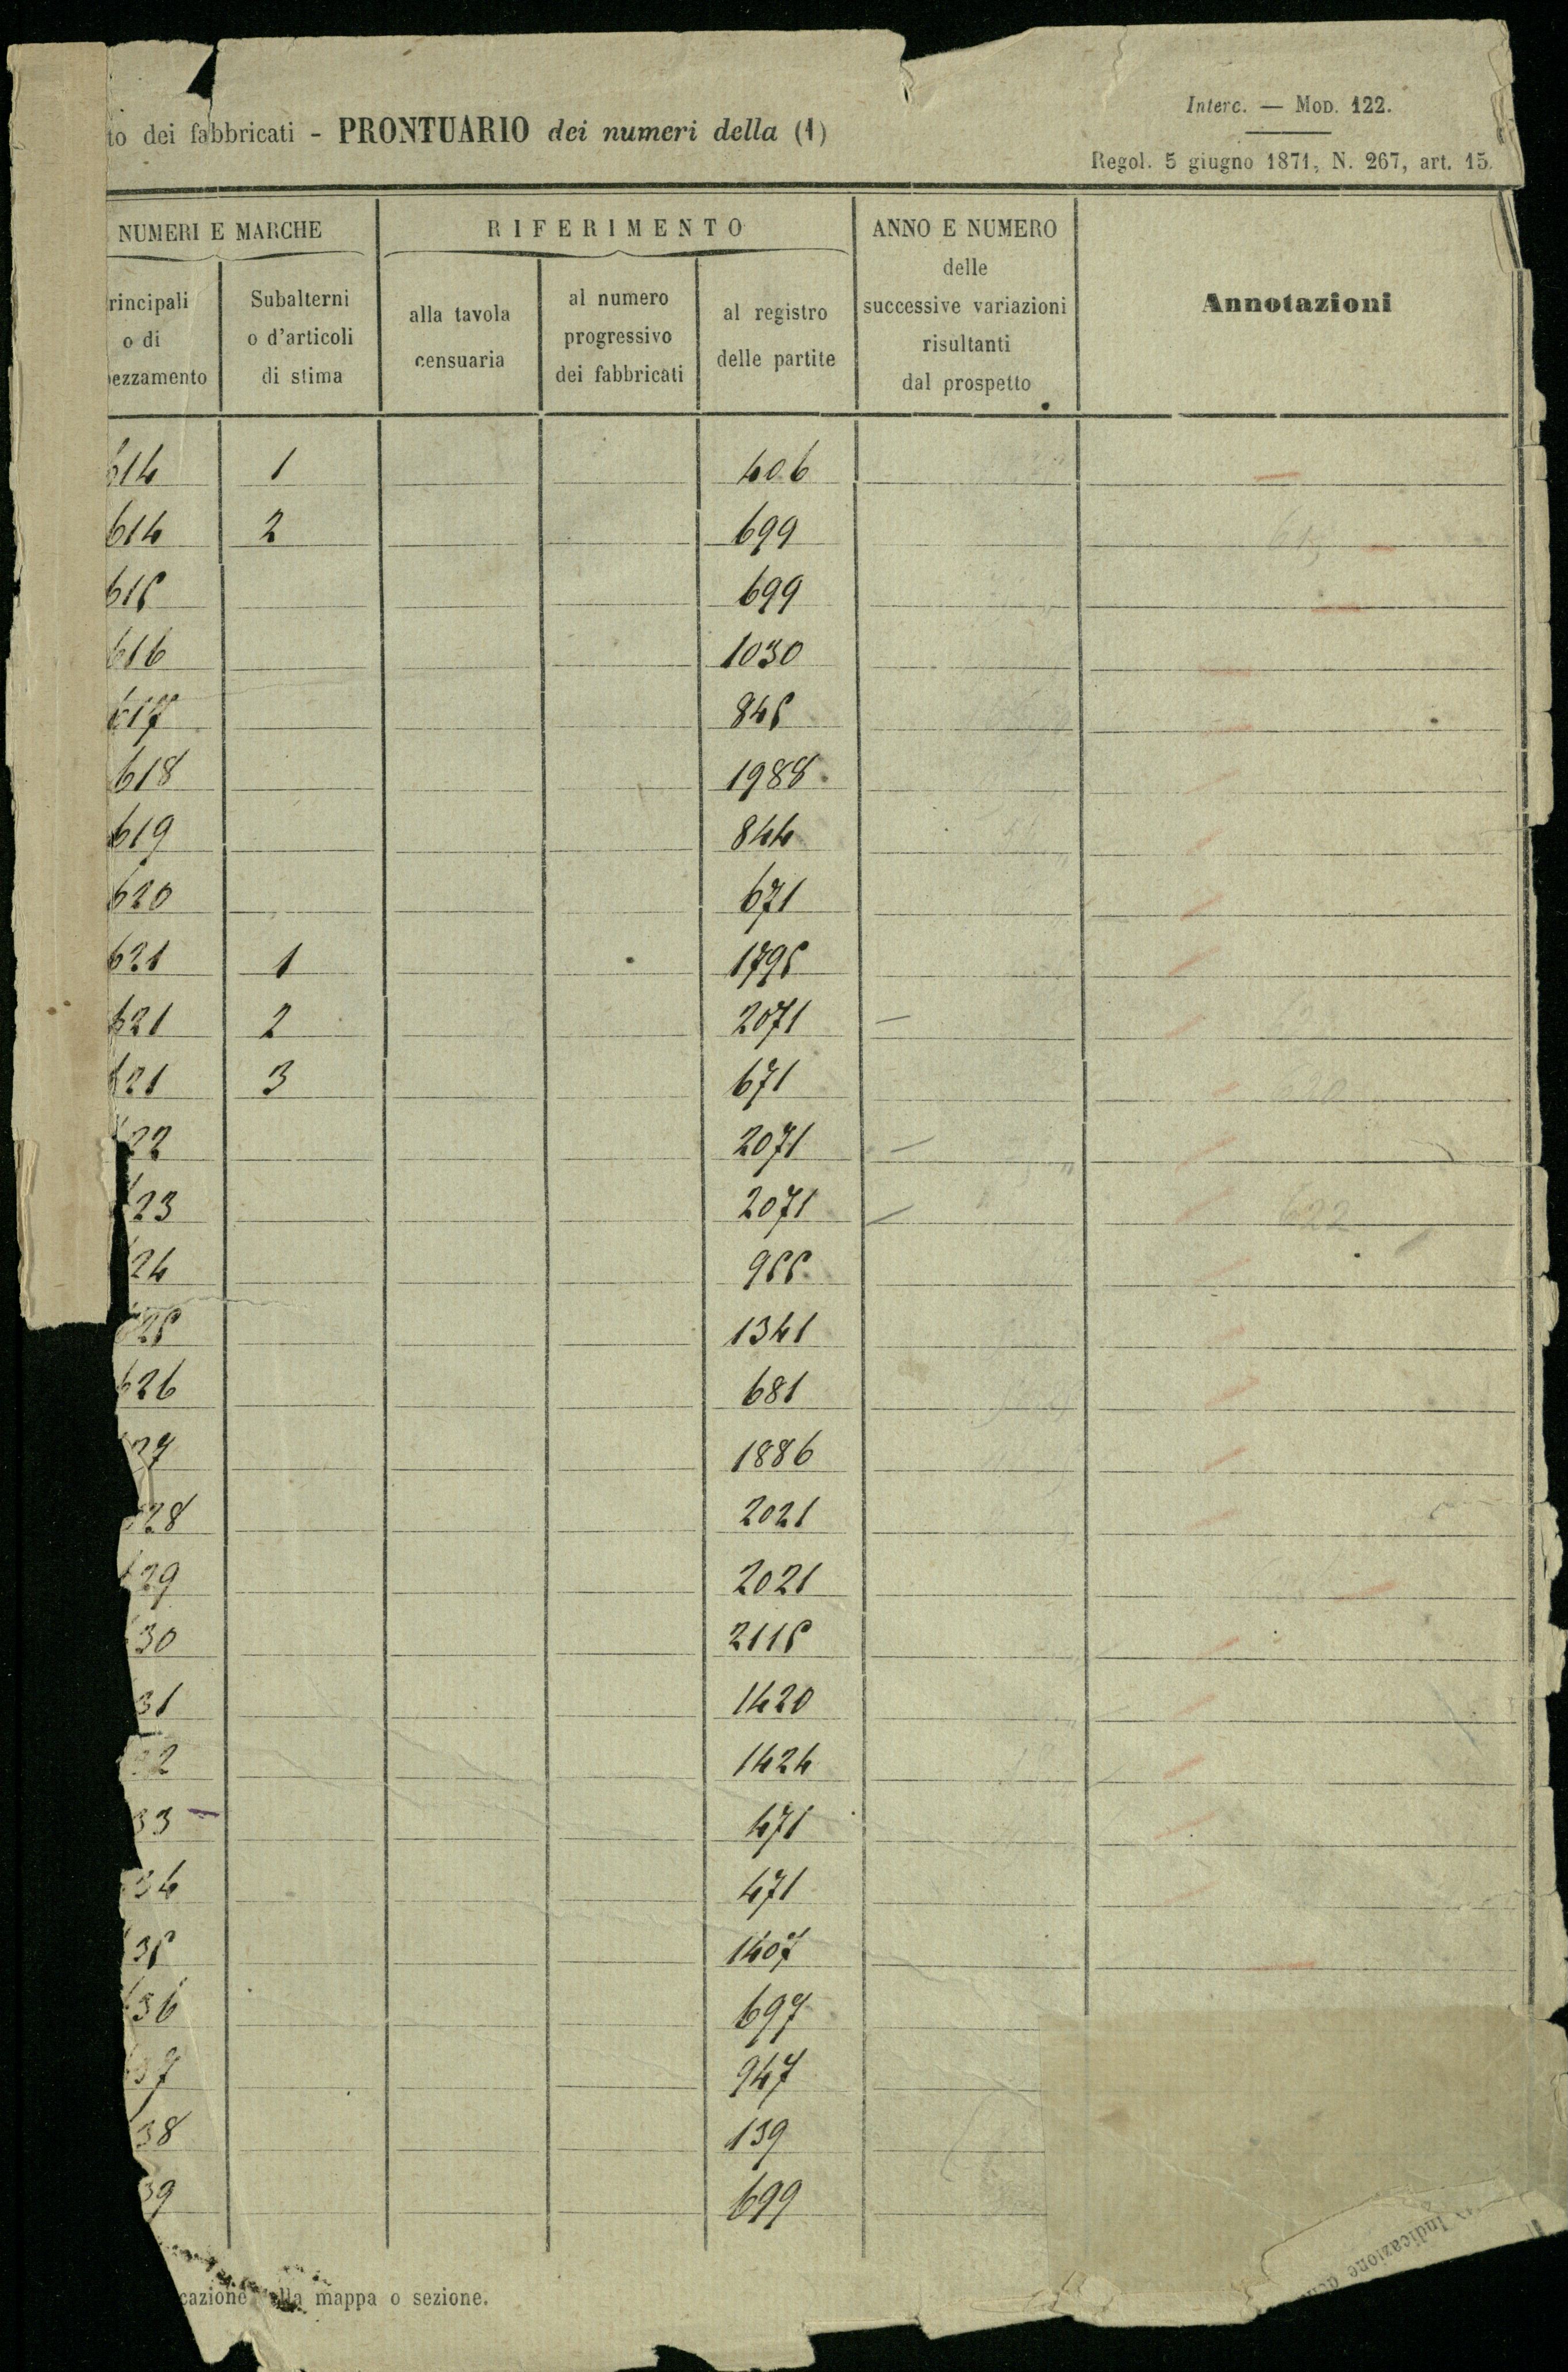 Interc. — MOD. 122.
to dei fabbricati - PRONTUARIO dei numeri della (1)
Regol. 5 giugno 1871, N. 267, art. 15.
NUMERI E MARCHE RIFERIMENTO ANNO E NUMERO
delle
successive variazioni
risultanti
dal prospetto
Annotazioni
rincipali
o di
ezzamento
Subalterni
o d'articoli
di stima
alla tavola
censuaria
al numero
progressivo
dei fabbricati
al registro
delle partite
614 1 406
614 2 699
615 699
616 1030
617 845
618 1988
619 844
620 671
621 1 1795
621 2 2071 —
621 3 671 620
22 2071 —
23 2071 — 622
24 955
25 1341
626 681
27 1886
28 2021
29 2021
30 2115
31 1420
32 1424
33 — 471
34 471
35 1407
36 697
37 947
38 139
39 699
cazione lla mappa o sezione.
Indicazione